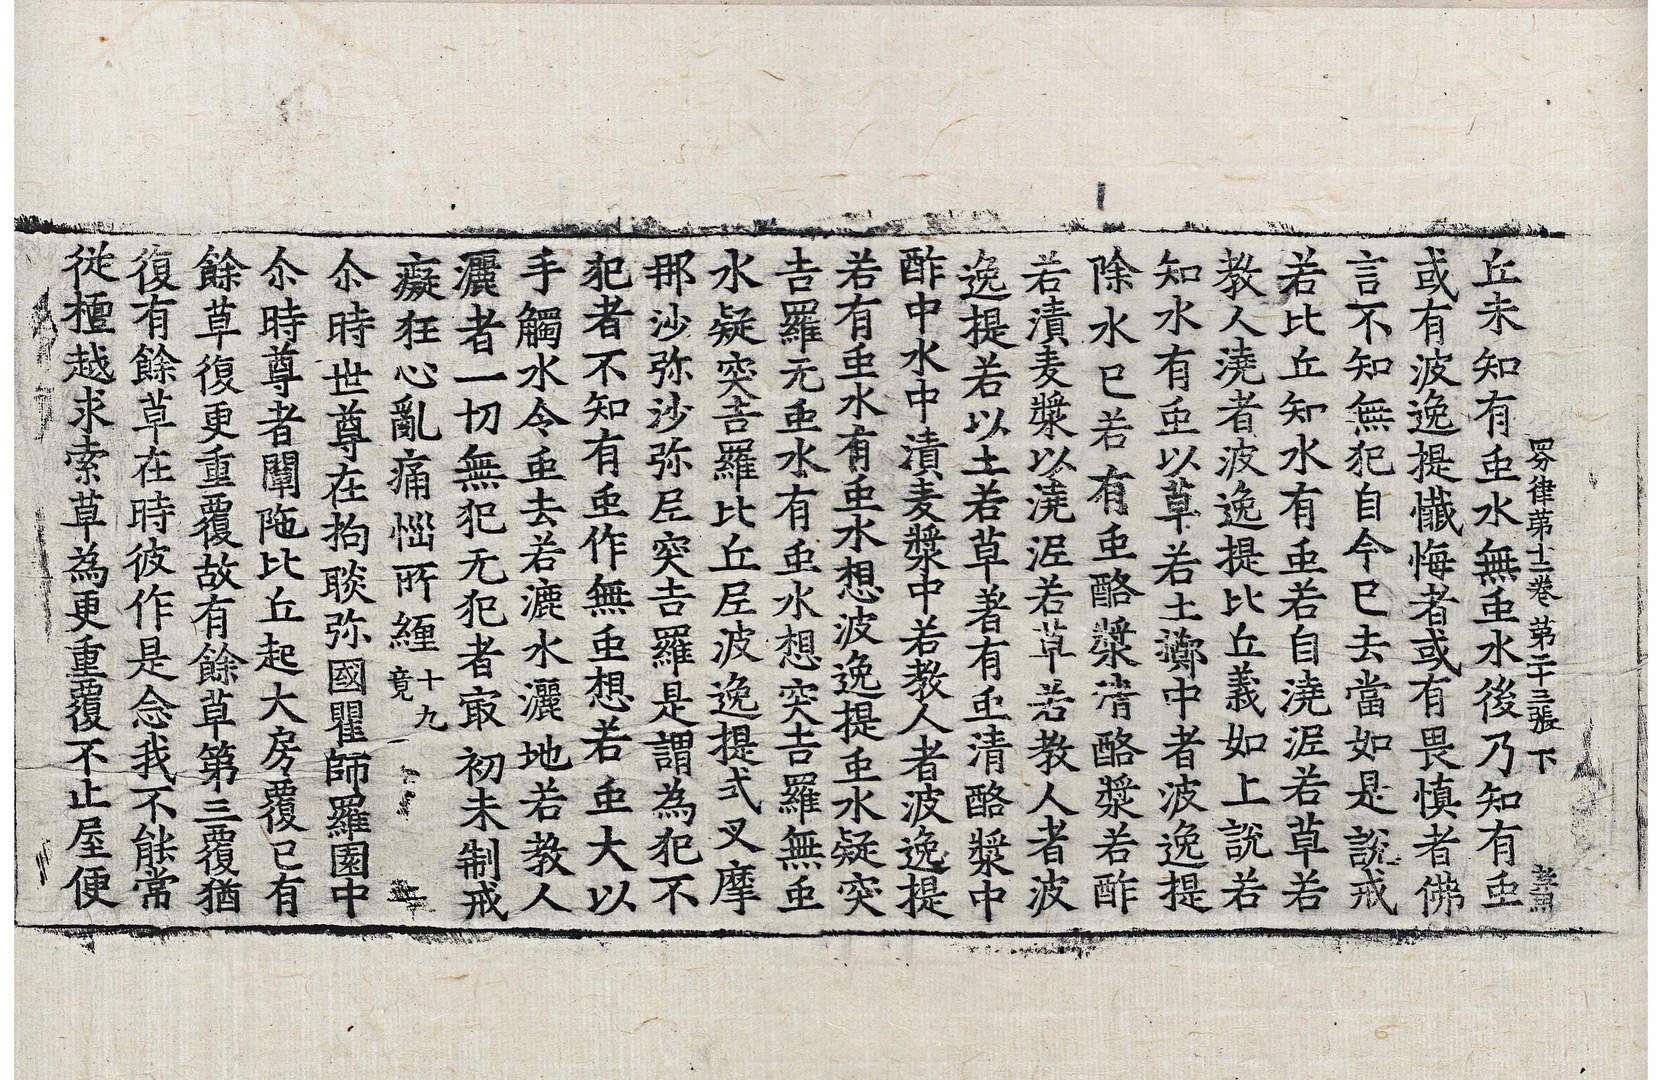 四分律第十二卷 第二十三張 下
丘未知有虫水無虫水後乃知有虫
或有波逸提懺悔者或有畏慎者佛
言不知無犯自今已去當如是說戒
若比丘知水有虫若自澆泥若草若
教人澆者波逸提比丘義如上說若
知水有虫以草若土擲中者波逸提
除水已若有虫酪漿清酪漿若酢
若漬麦漿以澆泥若草若教人者波
逸提若以土若草著有虫清酪漿中
酢中水中漬麦漿中若教人者波逸提
若有虫水有虫水想波逸提虫水疑突
吉羅无虫水有虫水想突吉羅無虫
水疑突吉羅比丘尼波逸提式叉摩
那沙弥沙弥尼突吉羅是謂為犯不
犯者不知有虫作無虫想若虫大以
手觸水令虫去若漉水灑地若教人
灑者一切無犯无犯者㝡初未制戒
癡狂心亂痛惱所纏十九竟
尒時世尊在拘睒弥國瞿師羅園中
尒時尊者闡陁比丘起大房覆已有
餘草復更重覆故有餘草第三覆猶
復有餘草在時彼作是念我不能常
従檀越求索草為更重覆不止屋便